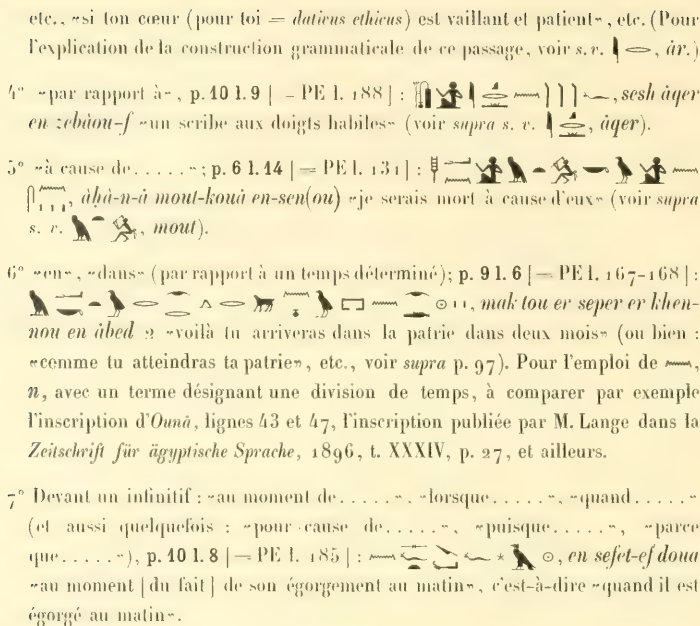 etc., «si ton cœur (pour toi = daticus ethicus) est vaillant et patient», etc. (Pour
l'explication de la construction grammaticale de ce passage, voir s. v. 𓇋𓂋, âr.)
4° «par rapport à», p. 10 l. 9 [= PE l. 188] : , sesh âqer
en zebâou-f «un scribe aux doigts habiles» (voir supra s. v. , âqer).
5° «à cause de.....»; p. 6 l. 14 [= PE l. 131] :
, âḥâ-n-â mout-kouâ en-sen(ou) «je serais mort à cause d'eux» (voir supra
s. v. , mout).
6° «en», «dans» (par rapport à un temps déterminé); p. 9 l. 6 [= PE l. 167-168] :
, mak tou er seper er khen-
nou en âbed 2 «voilà tu arriveras dans la patrie dans deux mois» (ou bien :
«comme tu atteindras ta patrie», etc., voir supra p. 97). Pour l'emploi de 𓈖,
n, avec un terme désignant une division de temps, à comparer par exemple
l'inscription d'Ounâ, lignes 43 et 47, l'inscription publiée par M. Lange dans la
Zeitschrift für ägyptische Sprache, 1896, t. XXXIV, p. 27, et ailleurs.
7° Devant un infinitif : «au moment de.....», «lorsque.....», «quand.....»
(et aussi quelquefois : «pour cause de.....», «puisque.....», «parce
que.....»), p. 10 l. 8 [= PE l. 185] : , en sefet-ef doua
«au moment [du fait] de son égorgement au matin», c'est-à-dire «quand il est
égorgé au matin».